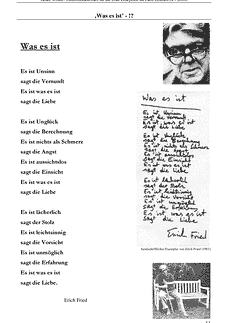 ‚Was es ist' - ??
Was es ist
Es ist Unsinn
sagt die Vernunft
Es ist was es ist
sagt die Liebe
Es ist Unglück
sagt die Berechnung
Es ist nichts als Schmerz
sagt die Angst
Es ist aussichtslos
sagt die Einsicht
Es ist was es ist
sagt die Liebe
Es ist lächerlich
sagt der Stolz
Es ist leichtsinnig
sagt die Vorsicht
Es ist unmöglich
sagt die Erfahrung
Es ist was es ist
sagt die Liebe.
Erich Fried
Was es ist
Es ist Unsinn
sagt die Vernunft
Es ist was es ist
sagt die Liebe
Es ist Unglück
sagt die Berechnung
Es ist nichts als Schmerz
sagt die Angst
Es ist aussichtslos
sagt die Einsicht
Es ist was es ist
sagt die Liebe
Es ist lächerlich
sagt der Stolz
Es ist leichtsinnig
sagt die Vorsicht
Es ist unmöglich
sagt die Erfahrung
Es ist was es ist
sagt die Liebe
Erich Fried